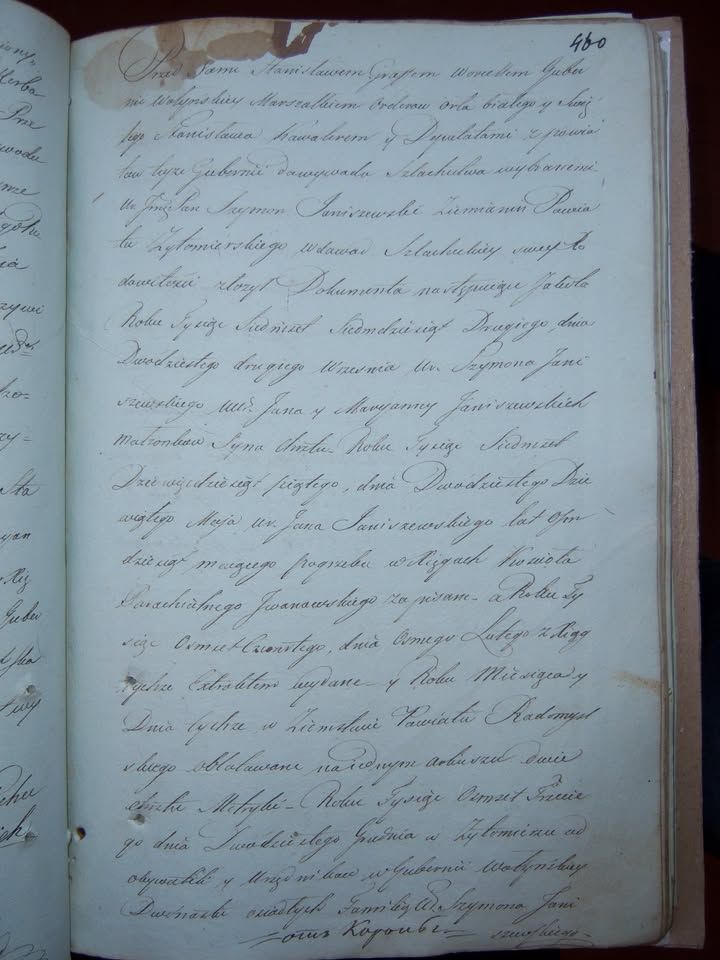 460
Przed Nami Stanisławem Graffem Worcellem Guber
nii Wołyńskiey Marszałkiem Orderow Orła białego y Swię
tego Stanisława Kawalerem y Deputatami z powia
tow teyże Gubernii dawywodu Szlachectwa wybranemi
Ur. Jmć Pan Szymon Janiszewski Ziemianin Powia
tu Zytomierskiego wdowod Szlacheckiey swey Ro
dowitości złożył Dokumenta następuiące Jakoto
Roku Tysiąc Siedmset Siedmdziesiąt Drugiego, dnia
Dwudziestego drugiego Wrzesnia Ur. Szymona Jani
szewskiego Jana y Maryanny Janiszewskich
małzonkow Syna chrztu Roku Tysiąc Siedmset
Dziewięcdziesiąt piątego, dnia Dwudziestego Dzie
wiątego Maja Ur. Jana Janiszewskiego lat ośm
dziesiąt maiącego pogrzebu w Xięgach Koscioła
Parachielnego Jwanowskiego zapisane a Roku Ty
siąc Osmset Czwartego, dnia Osmego Lutego z Xiąg
tychże Extraktem wydane y Roku Miesiąca y
Dnia tychże w Ziemstwie Powiatu Radomysl
skiego oblatowane na iednym arkuszu dwie
Metryki Roku Tysiąc Osmset Trzecie
go dnia Dwudziestego Grudnia w Zytomierzu od
obywateli y Urzędnikow w Gubernii Wołyńskiey
osiadłych Familij Ur. Szymona Jani
szewskiego